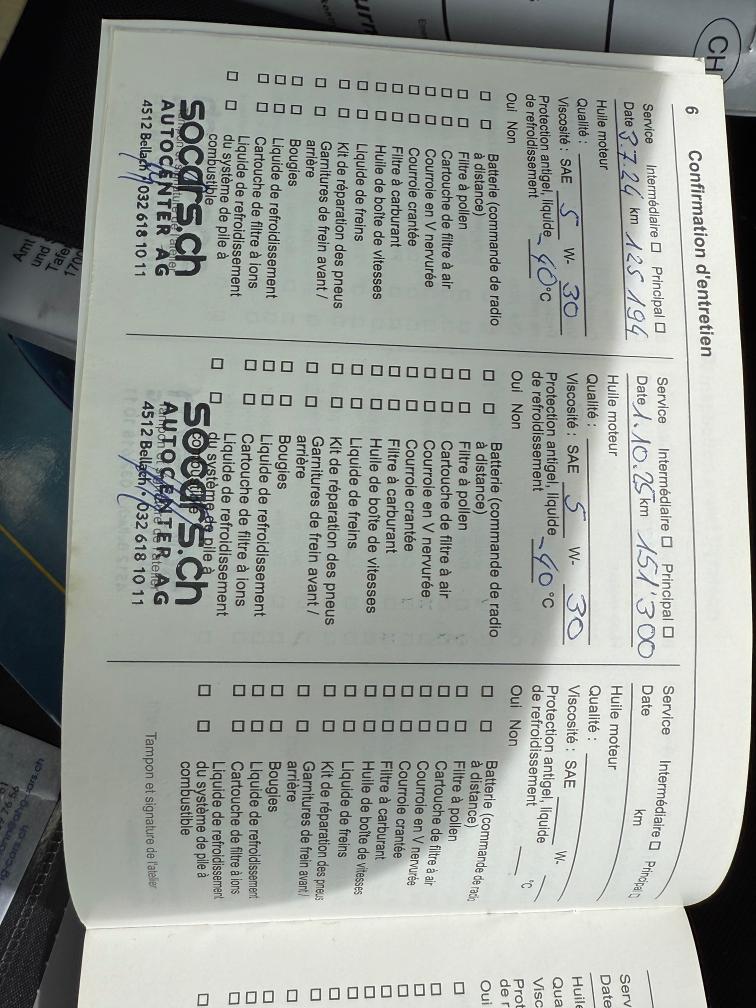 6 Confirmation d'entretien
Service Intermédiaire ☐ Principal ☐
Date 3.7.24 km 125 194
Huile moteur
Qualité :
Viscosité : SAE 5 W- 30
Protection antigel, liquide
de refroidissement -40 °C
Oui Non
☐ ☐ Batterie (commande de radio
à distance)
☐ ☐ Filtre à pollen
☐ ☐ Cartouche de filtre à air
☐ ☐ Courroie en V nervurée
☐ ☐ Courroie crantée
☐ ☐ Filtre à carburant
☐ ☐ Huile de boîte de vitesses
☐ ☐ Liquide de freins
☐ ☐ Kit de réparation des pneus
☐ ☐ Garnitures de frein avant /
arrière
☐ ☐ Bougies
☐ ☐ Liquide de refroidissement
☐ ☐ Cartouche de filtre à ions
☐ ☐ Liquide de refroidissement
du système de pile à
combustible
socars.ch
AUTOCENTER AG
4512 Bellach • 032 618 10 11
Service Intermédiaire ☐ Principal ☐
Date 1.10.25 km 151'300
Huile moteur
Qualité :
Viscosité : SAE 5 W- 30
Protection antigel, liquide
de refroidissement -40 °C
Oui Non
☐ ☐ Batterie (commande de radio
à distance)
☐ ☐ Filtre à pollen
☐ ☐ Cartouche de filtre à air
☐ ☐ Courroie en V nervurée
☐ ☐ Courroie crantée
☐ ☐ Filtre à carburant
☐ ☐ Huile de boîte de vitesses
☐ ☐ Liquide de freins
☐ ☐ Kit de réparation des pneus
☐ ☐ Garnitures de frein avant /
arrière
☐ ☐ Bougies
☐ ☐ Liquide de refroidissement
☐ ☐ Cartouche de filtre à ions
☐ ☐ Liquide de refroidissement
du système de pile à
combustible
socars.ch
Tampon et signature de l'atelier
AUTOCENTER AG
4512 Bellach • 032 618 10 11
Service Intermédiaire ☐ Principal ☐
Date km
Huile moteur
Qualité :
Viscosité : SAE W-
Protection antigel, liquide
de refroidissement °C
Oui Non
☐ ☐ Batterie (commande de radio
à distance)
☐ ☐ Filtre à pollen
☐ ☐ Cartouche de filtre à air
☐ ☐ Courroie en V nervurée
☐ ☐ Courroie crantée
☐ ☐ Filtre à carburant
☐ ☐ Huile de boîte de vitesses
☐ ☐ Liquide de freins
☐ ☐ Kit de réparation des pneus
☐ ☐ Garnitures de frein avant /
arrière
☐ ☐ Bougies
☐ ☐ Liquide de refroidissement
☐ ☐ Cartouche de filtre à ions
☐ ☐ Liquide de refroidissement
du système de pile à
combustible
Tampon et signature de l'atelier
CH